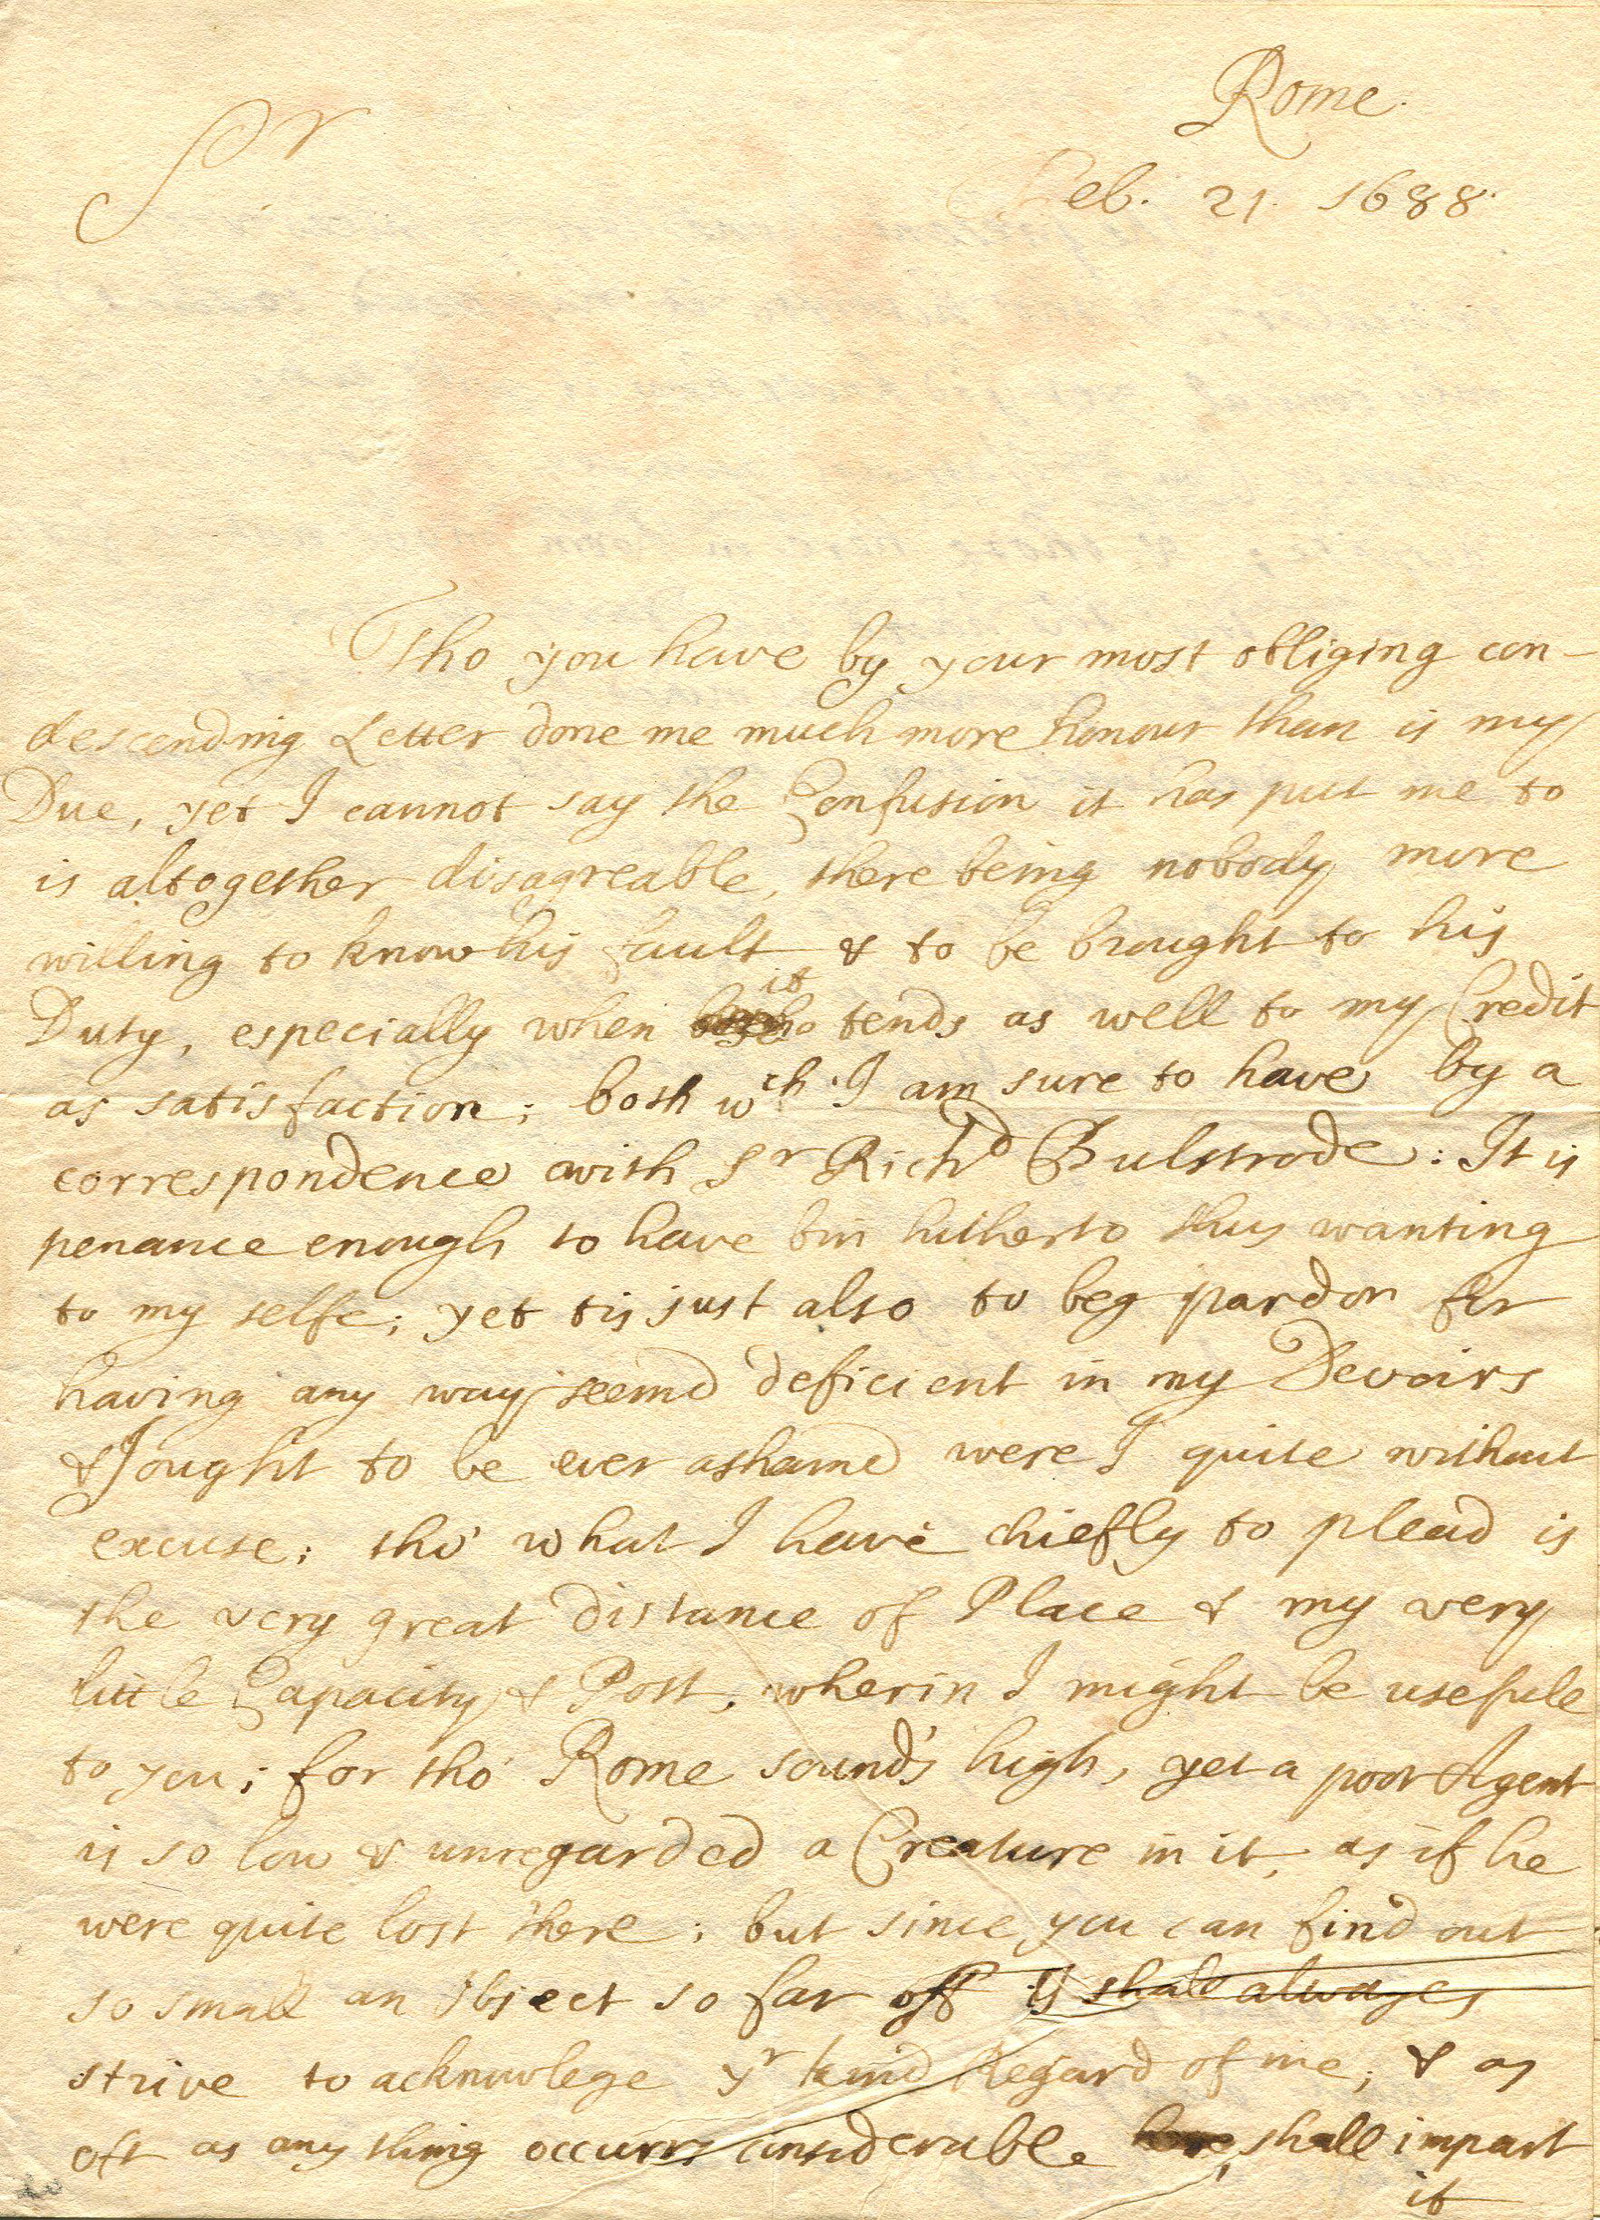 Rome.
Sr
Feb. 21. 1688.
Tho you have by your most obliging con-
descending Letter done me much more honour than is my
Due, yet I cannot say the Confusion it has put me to
is altogether disagreable, there being nobody more
willing to know his fault & to be brought to his
it
Duty, especially when tends as well to my Credit
as satisfaction; both wch I am sure to have by a
correspondence with Sr Richd Bulstrode: It is
penance enough to have bin hitherto thus wanting
to my selfe; yet tis just also to beg pardon for
having any way seemd deficient in my Devoirs
& I ought to be ever ashamd were I quite without
excuse; tho' what I have chiefly to plead is
the very great distance of Place & my very
little Capacity & Post, wherin I might be usefull
to you; for tho' Rome sound's high, yet a poor Agent
is so low & unregarded a Creature in it, as if he
were quite lost there; but since you can find out
so small an Object so far off I shall alwayes
strive to acknowlege yr kind Regard of me; & as
oft as any thing occurrs considerable here, shall impart
it